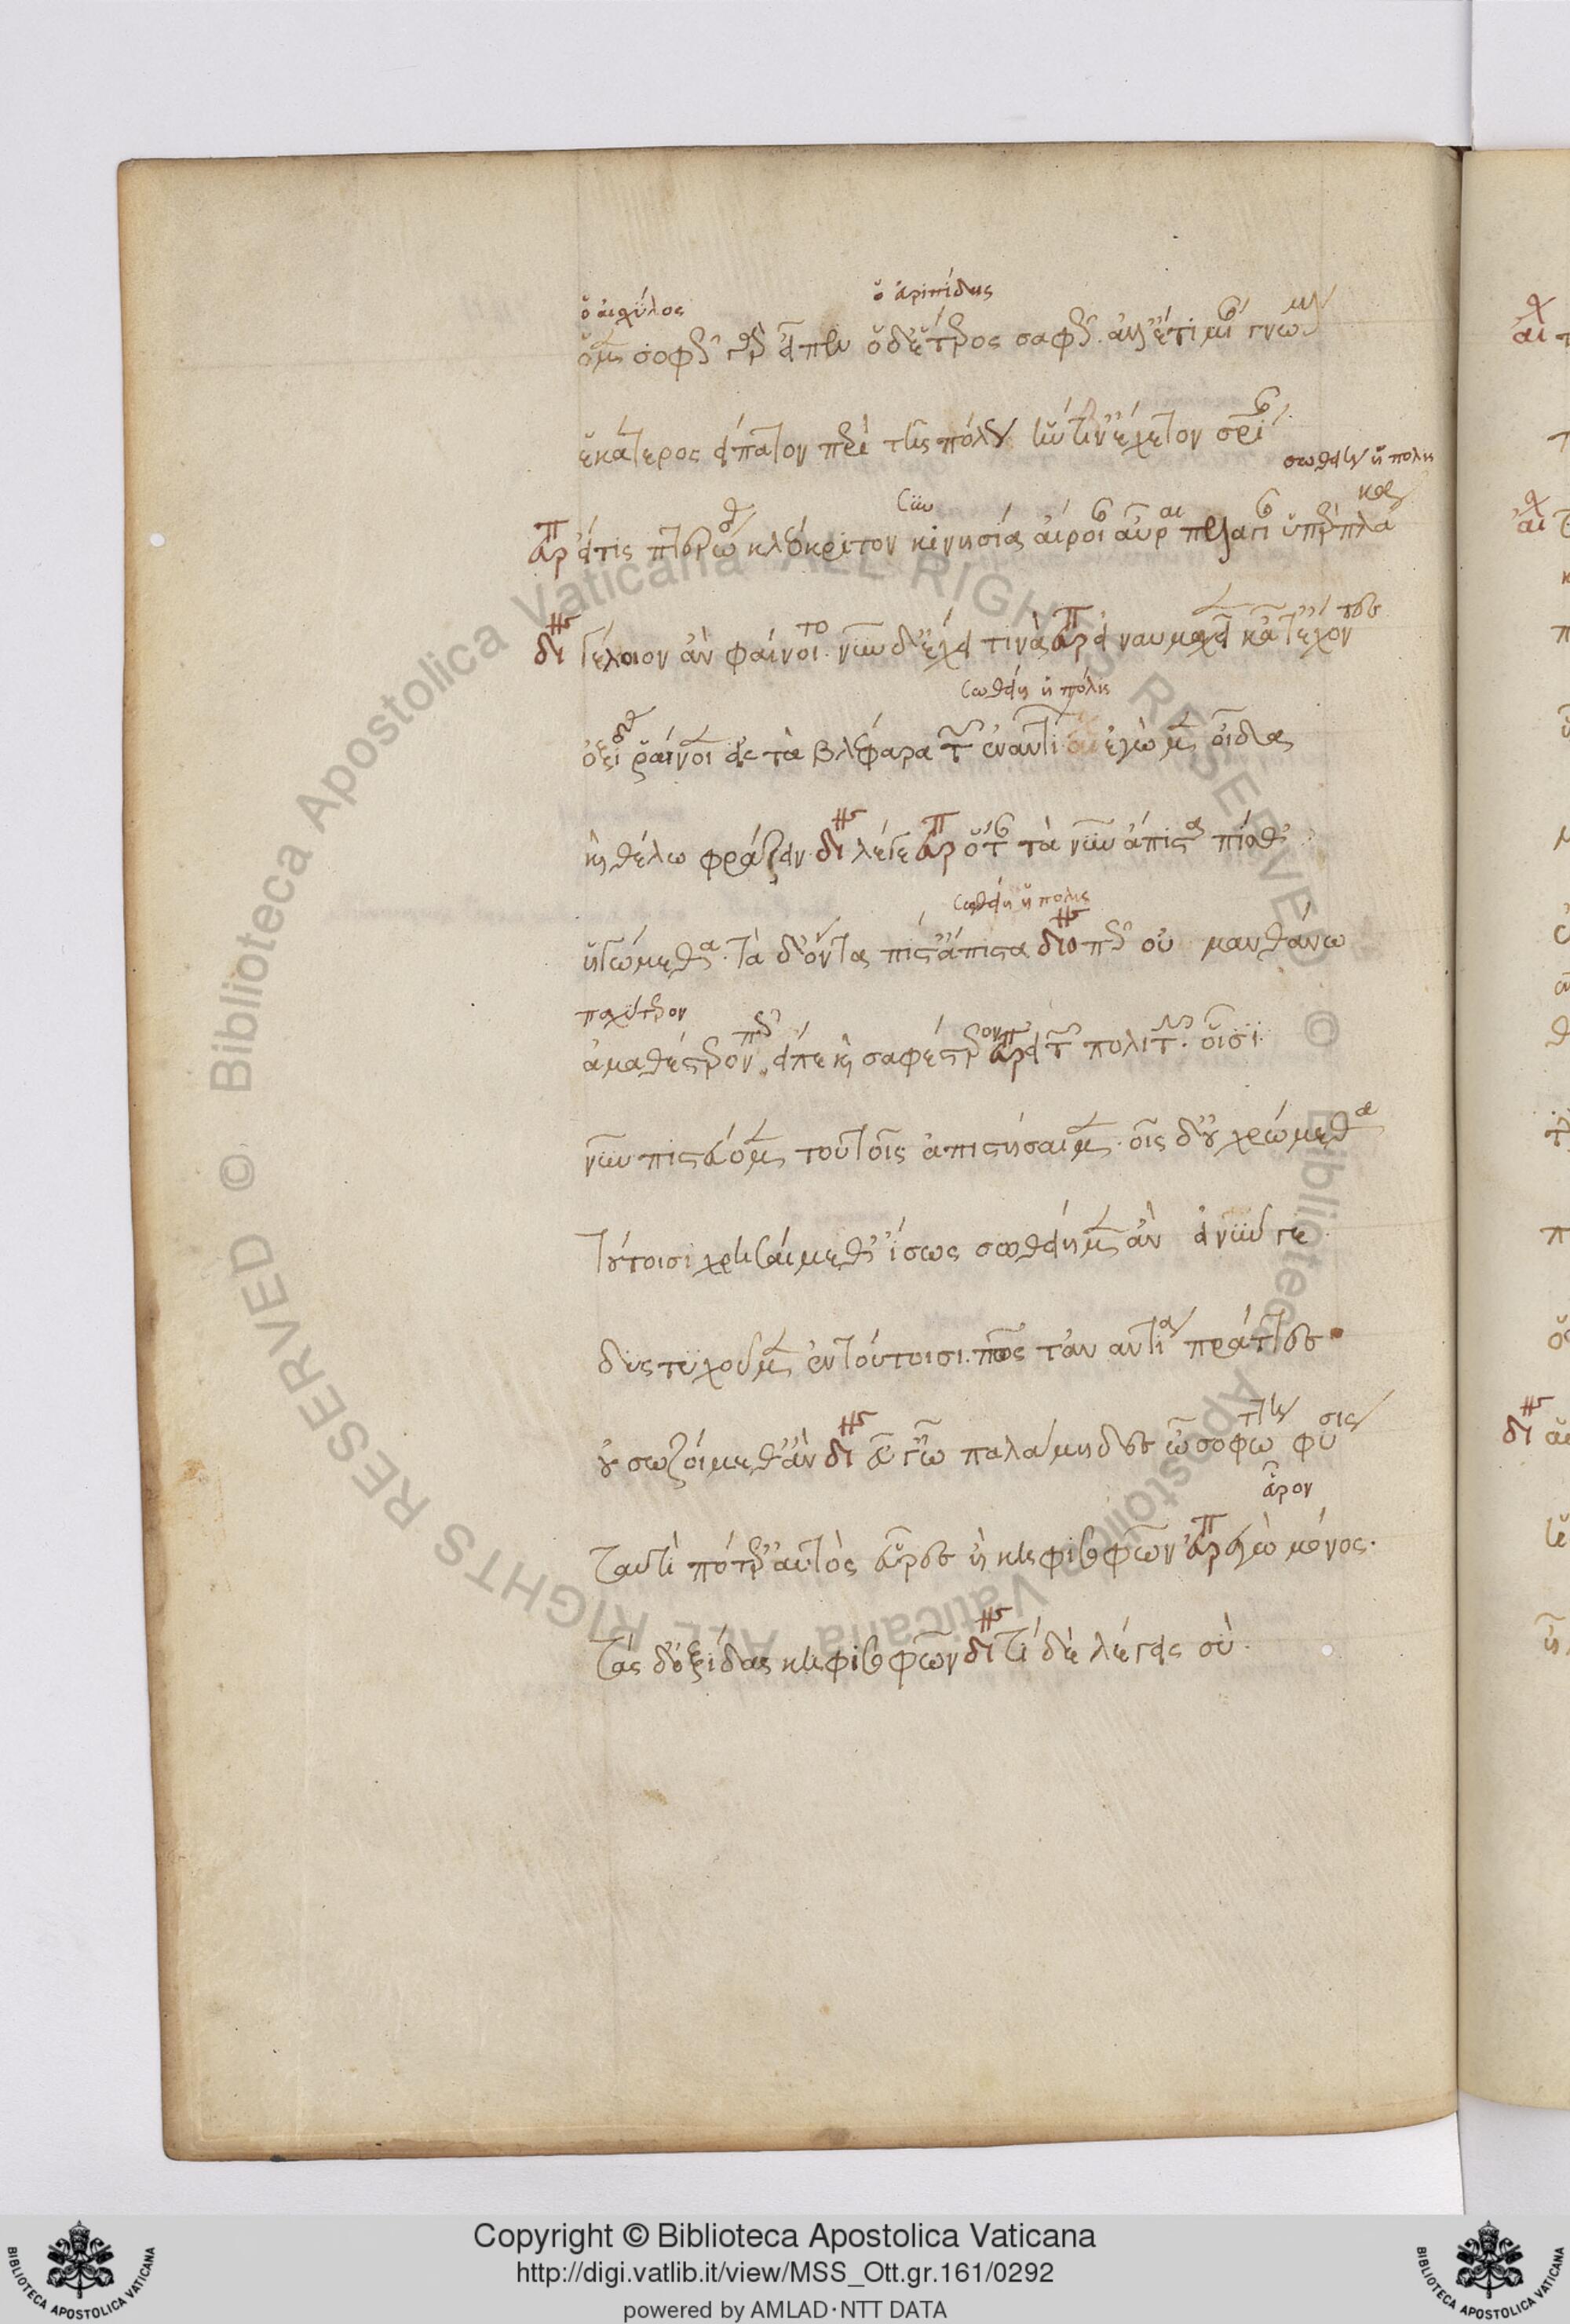 ὁ αἰσχύλος ὁ εὐριπίδης
ὁ μὲν σοφῶς γὰρ εἶπεν ὁ δ' ἕτερος σαφῶς. ἀλλ' ἔτι μίαν γνώμην
ἑκάτερος εἴπατον περὶ τῆς πόλεως ἥντιν' ἔχετον σωτηρίαν
σωθείη ἡ πόλις
εὐρ εἴ τις πτερώσας κλεόκριτον κινησίᾳ αἴροιεν αὖραι πελαγίαν ὑπὲρ πλάκα
δι γέλοιον ἂν φαίνοιτο. νοῦν δ' ἔχει τινὰ εὐρ εἰ ναυμαχοῖεν κᾆτ' ἔχοντες
σωθείη ἡ πόλις
ὀξίδας ῥαίνοιεν εἰς τὰ βλέφαρα τῶν ἐναντίων ἐγὼ μὲν οἶδα
καὶ θέλω φράζειν. δι λέγε εὐρ ὅταν τὰ νῦν ἄπιστα πίσθ'
σωθείη ἡ πόλις
ἡγώμεθα. τὰ δ' ὄντα πίστ' ἄπιστα διο πῶς οὐ μανθάνω
παχύτερον
ἀμαθέστερόν πως εἰπὲ καὶ σαφέστερον εὐρ εἰ τῶν πολιτῶν. οἷσι
νῦν πιστεύομεν τούτοις ἀπιστήσαιμεν. οἷς δ' οὐ χρώμεθα
τούτοισι χρησαίμεθ' ἴσως σωθείημεν ἄν εἰ νῦν γε
δυστυχοῦμεν ἐν τούτοισι. πῶς τἀναντία πράττοντες
οὐ σωζοίμεθ' ἄν δι εὖ γ' ὦ παλάμηδες ὦ σοφωτάτη φύσις
εὗρον
ταυτὶ πότερ' αὐτὸς εὗρες ἢ κηφισοφῶν εὐρ ἐγὼ μόνος.
τὰς δ' ὀξίδας κηφισοφῶν δι τί δὲ λέγεις σύ.
Copyright © Biblioteca Apostolica Vaticana
http://digi.vatlib.it/view/MSS_Ott.gr.161/0292
powered by AMLAD·NTT DATA